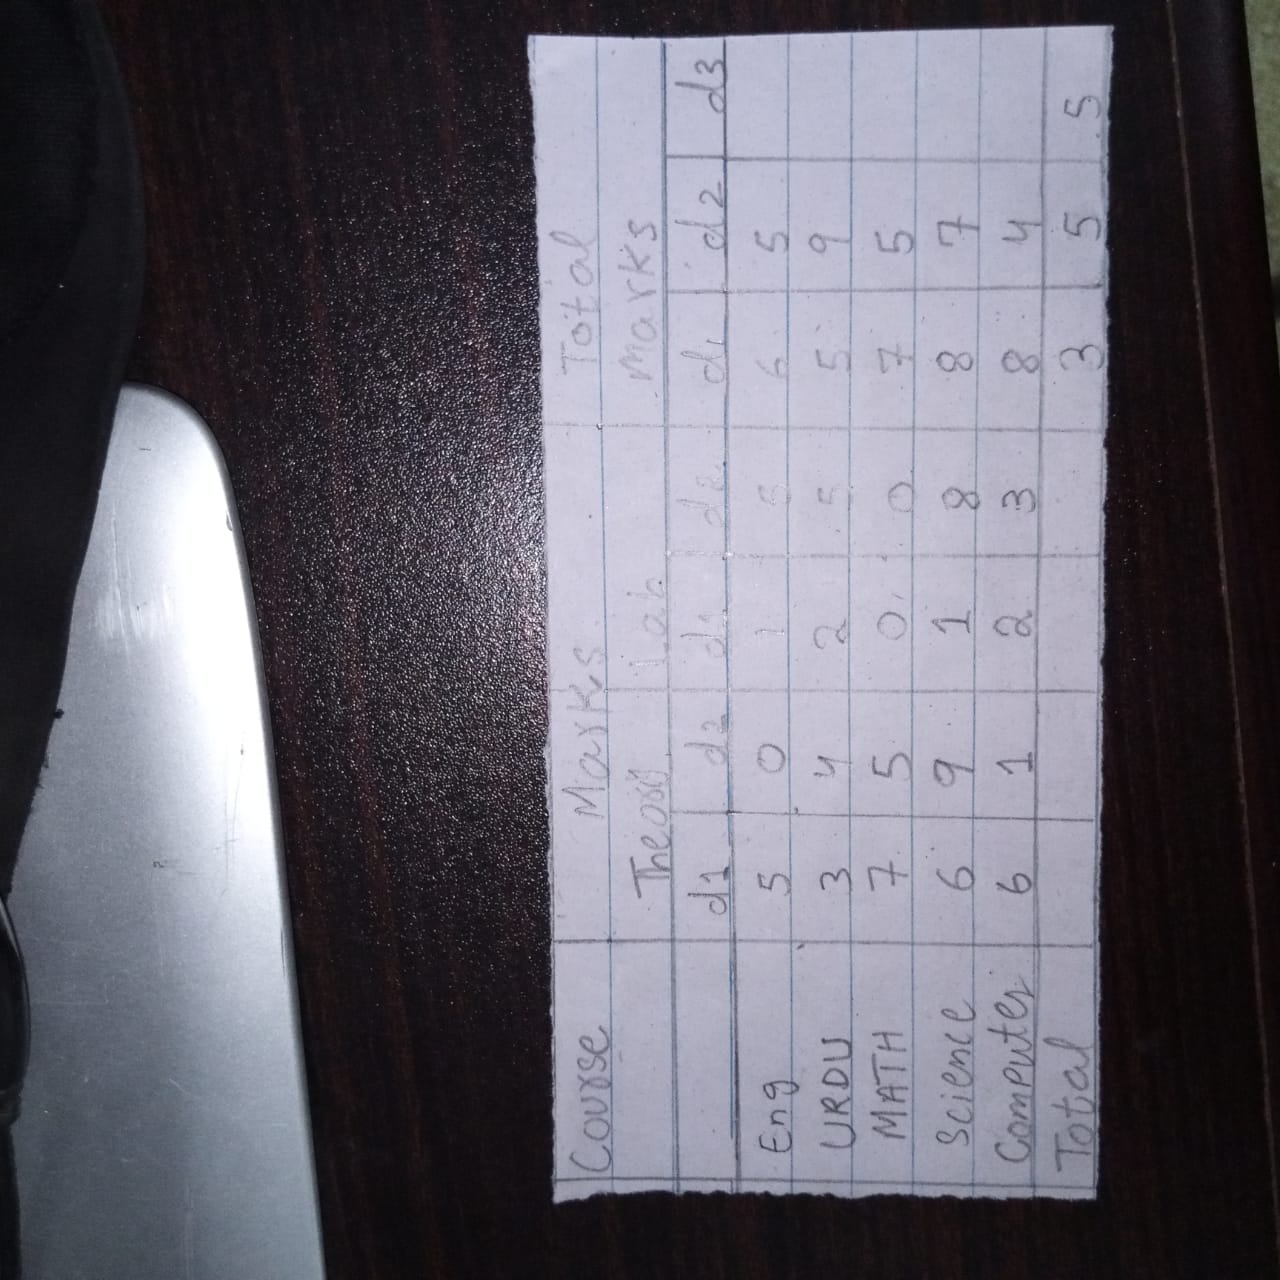 Course Marks Total
Theory Lab Marks
d1 d2 d1 d2 d1 d2 d3
Eng 5 0 1 5 6 5
URDU 3 4 2 5 5 9
MATH 7 5 0 0 7 5
Science 6 9 1 8 8 7
Computer 6 1 2 3 8 4
Total 3 5 5